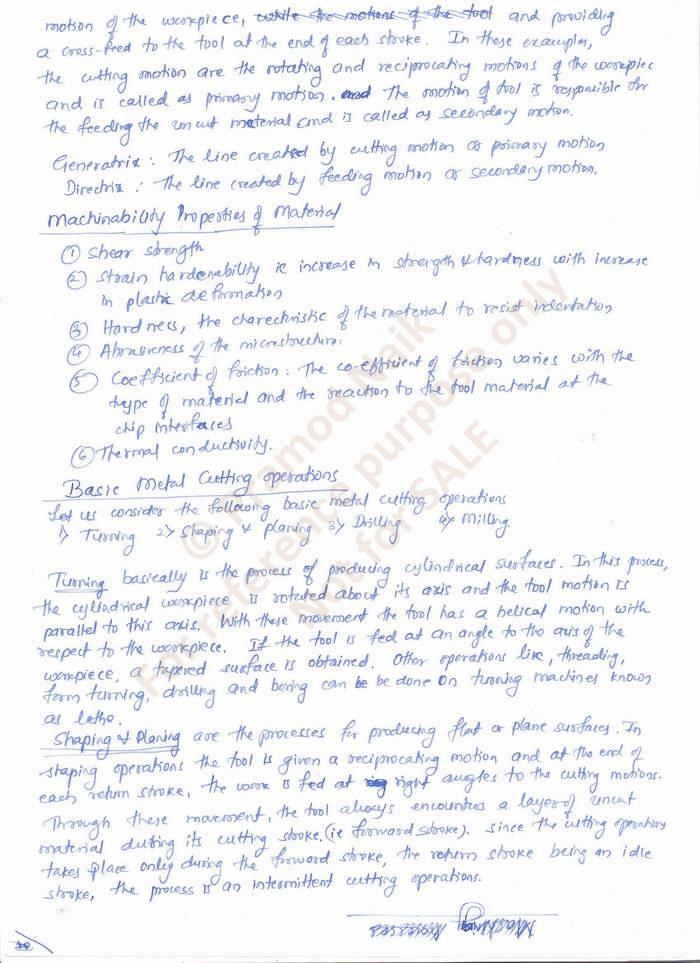 motion of the workpiece, while the motions of the tool and providing
a cross-feed to the tool at the end of each stroke. In these examples,
the cutting motion are the rotating and reciprocating motions of the workpiec
and is called as primary motion. and The motion of tool is responsible for
the feeding the un cut material and is called as secondary motion.
Generatrix : The line created by cutting motion or primary motion
Directrix : The line created by feeding motion or secondary motion.
Machinability Properties of Material
① Shear strength
② Strain hardenability ie increase in strength & hardness with increase
in plastic deformation
③ Hardness, the charecteristic of the material to resist indentation
④ Abrasiveness of the microstructure.
⑤ Coefficient of friction : The co-efficient of friction varies with the
type of material and the reaction to the tool material at the
chip interfaces
⑥ Thermal conductivity.
Basic Metal Cutting operations
Let us consider the following basic metal cutting operations
1> Turning 2> Shaping & planing 3> Drilling 4> Milling.
Turning basically is the process of producing cylindrical surfaces. In this process,
the cylindrical workpiece is rotated about its axis and the tool motion is
parallel to this axis. With these movement the tool has a helical motion with
respect to the workpiece. If the tool is fed at an angle to the axis of the
workpiece, a tapered surface is obtained. Other operations like, threading,
form turning, drilling and boring can be be done on turning machines known
as lathe.
Shaping & Planing are the processes for producing flat or plane surfaces. In
shaping operations the tool is given a reciprocating motion and at the end of
each return stroke, the work is fed at right angles to the cutting motions.
Through these movement, the tool always encounters a layer of uncut
material during its cutting stroke. (ie forward stroke). Since the cutting operations
takes place only during the forward stroke, the return stroke being an idle
stroke, the process is an intermittent cutting operations.
© Pramod Naik
For reference purpose only
Not for SALE